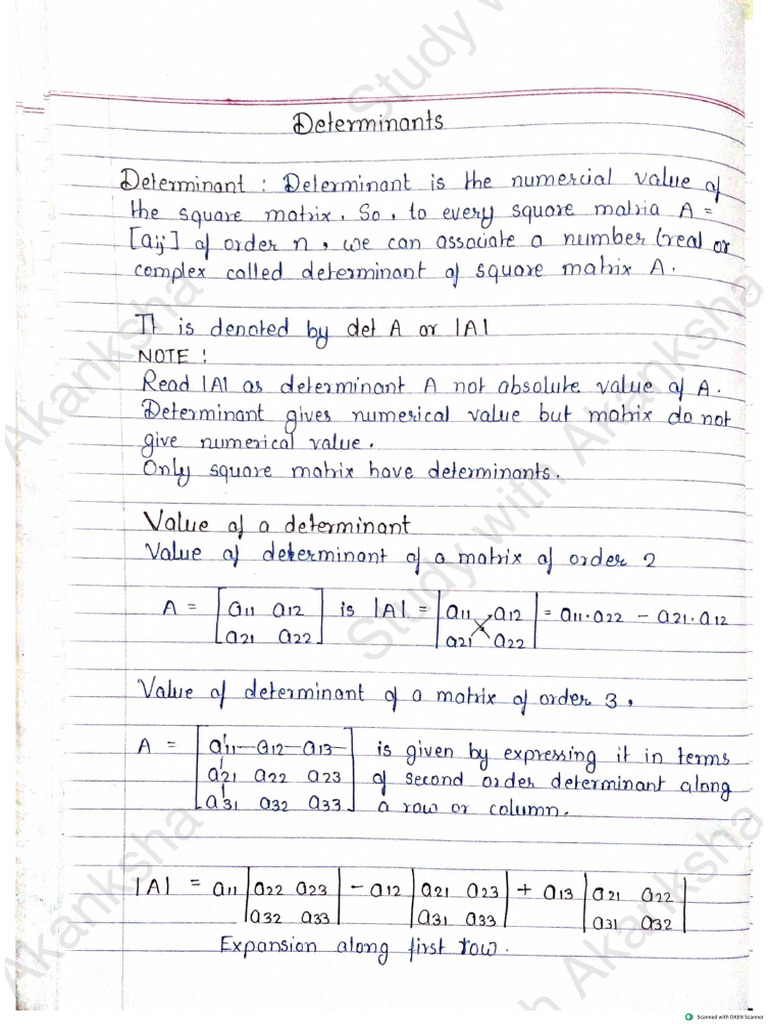 Determinants
Determinant : Determinant is the numercial value of
the square matrix. So, to every square matria A =
[aij] of order n, we can associate a number (real or
complex called determinant of square matrix A.
It is denoted by det A or |A|
NOTE :
Read |A| as determinant A not absolute value of A.
Determinant gives numerical value but matrix do not
give numerical value.
Only square matrix have determinants.
Value of a determinant
Value of determinant of a matrix of order 2
A = [a11 a12 is |A| = |a11 a12| = a11·a22 - a21·a12
a21 a22] |a21 a22|
Value of determinant of a matrix of order 3,
A = [a11 a12 a13 is given by expressing it in terms
a21 a22 a23 of second order determinant along
a31 a32 a33] a row or column.
|A| = a11 |a22 a23| - a12 |a21 a23| + a13 |a21 a22|
|a32 a33| |a31 a33| |a31 a32|
Expansion along first row.
Study with Akanksha
Scanned with OKEN Scanner